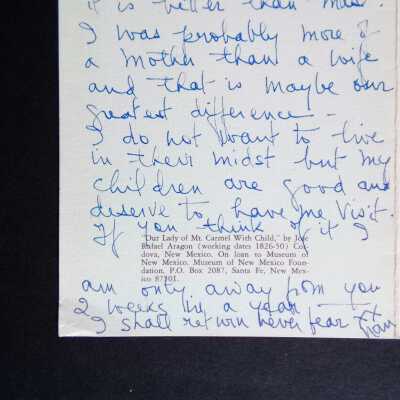 it is better than most.
I was probably more of
a mother than a wife
and that is maybe our
greatest difference -
I do not want to live
in their midst but my
children are good and
deserve to have me visit.
If you think of it I
"Our Lady of Mt. Carmel With Child," by José
Rafael Aragon (working dates 1826-50) Cor-
dova, New Mexico. On loan to Museum of
New Mexico. Museum of New Mexico Foun-
dation, P.O. Box 2087, Santa Fe, New Mex-
ico 87501.
am only away from you
2 weeks in a year
I shall return never fear